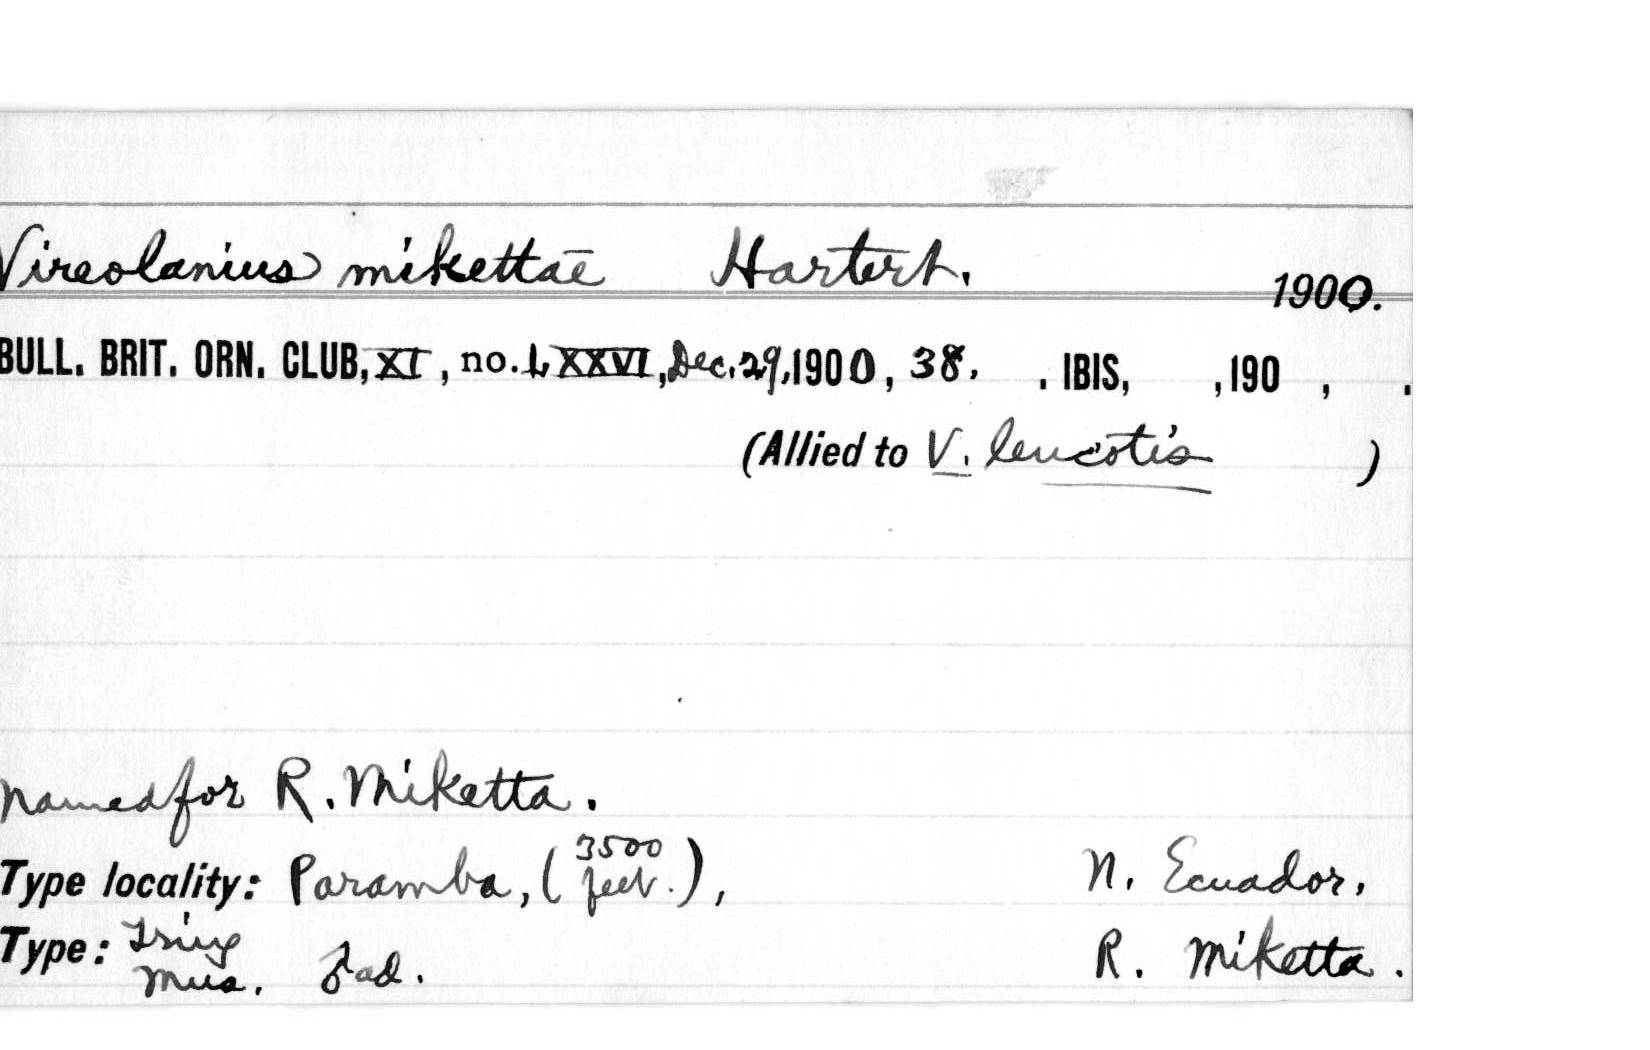 Vireolanius mikettae Hartert. 1900.
BULL. BRIT. ORN. CLUB, XI, no. LXXVI, Dec. 29, 1900, 38. . IBIS, , 190 , .
(Allied to V. leucotis )
Named for R. Miketta.
Type locality: Paramba, (3500 feet.), N. Ecuador,
Type: Tring Mus. ♂ ad. R. Miketta.